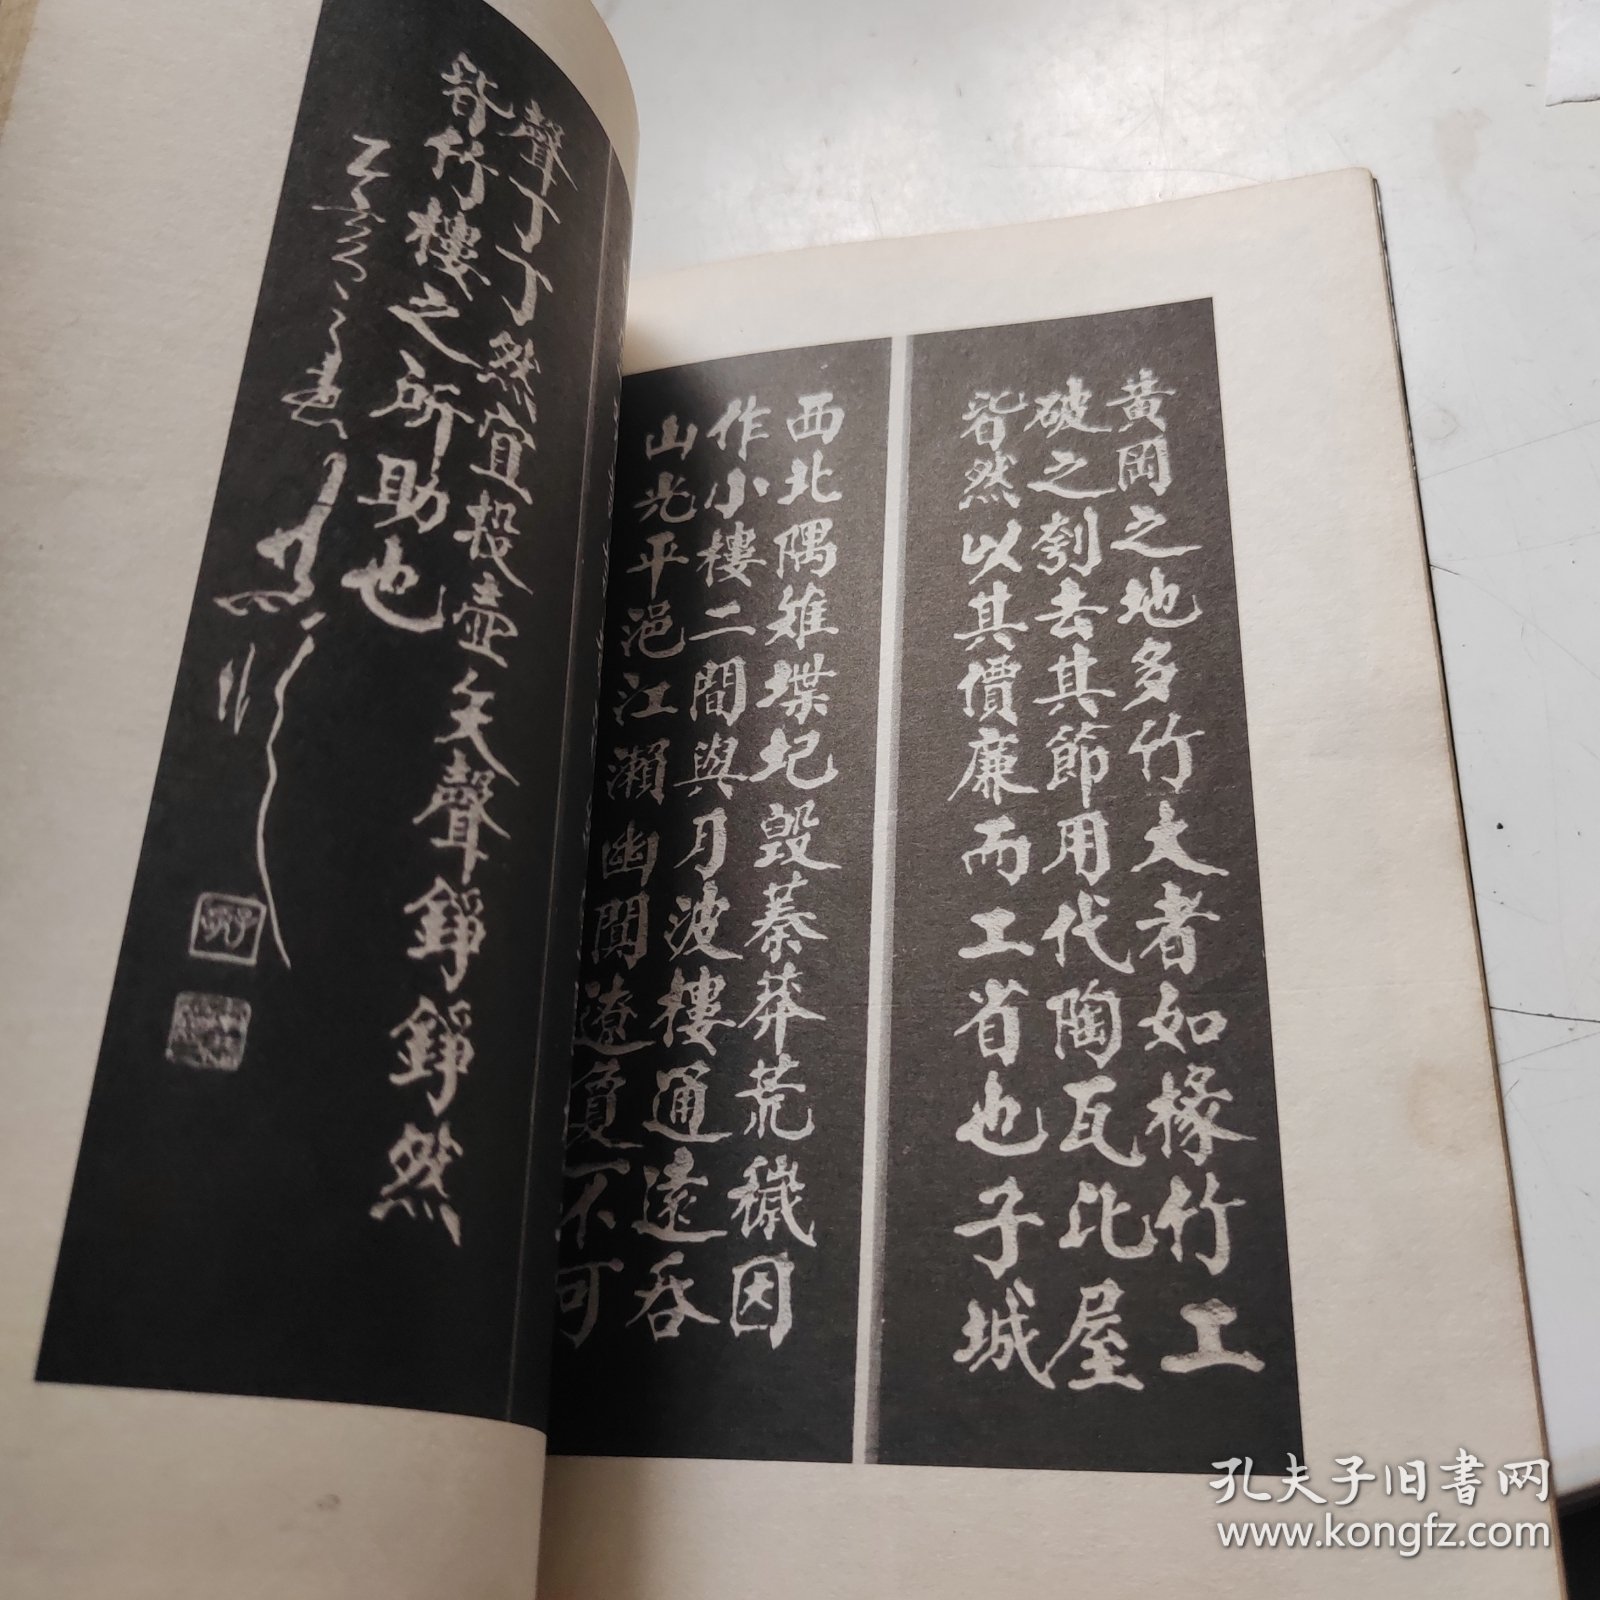 黃岡之地多竹大者如椽竹工
破之刳去其節用代陶瓦比屋
皆然以其價廉而工省也子城
西北隅雉堞圮毀蓁莽荒穢因
作小樓二間與月波樓通遠吞
山光平浥江瀨幽闃遼敻不可
聲丁丁然宜投壺矢聲錚錚然
皆竹樓之所助也
孔夫子旧书网
www.kongfz.com